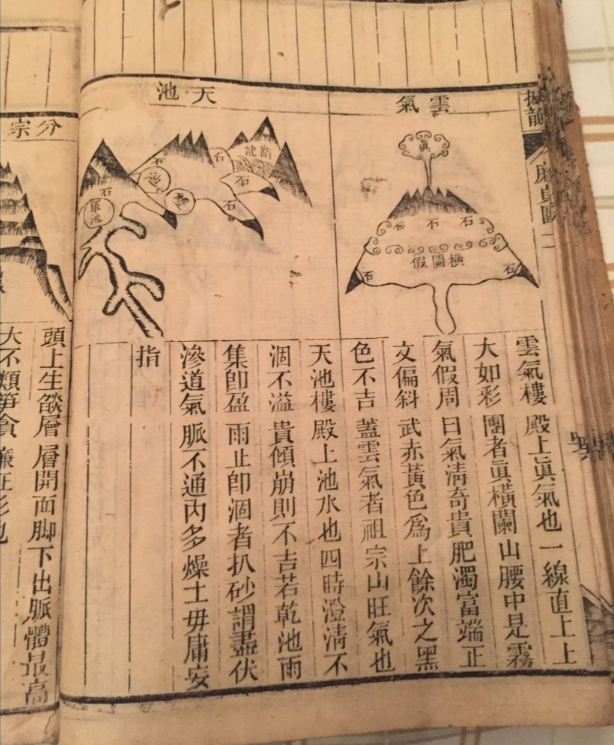 廉貞圖二
雲氣
眞
石 石 石
橫闌假
石 石
雲氣樓殿上眞氣也一線直上上
大如彩團者眞橫闌山腰中是霧
氣假周曰氣清奇貴肥濁富端正
文偏斜武赤黃色爲上餘次之黑
色不吉蓋雲氣者祖宗山旺氣也
天池
石
石
石
石
石
天池樓殿上池水也四時澄清不
涸不溢貴傾崩則不吉若乾池雨
集卽盈雨止卽涸者扒砂謂盡伏
滲道氣脈不通內多燥土毋庸妄
指
分宗
頭上生燄層層開面脚下出脈體最高
大不類